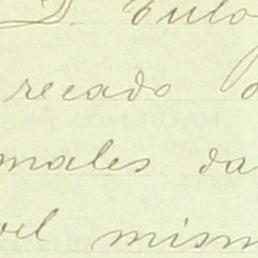 D. Tulo
recado
males da
vel mism